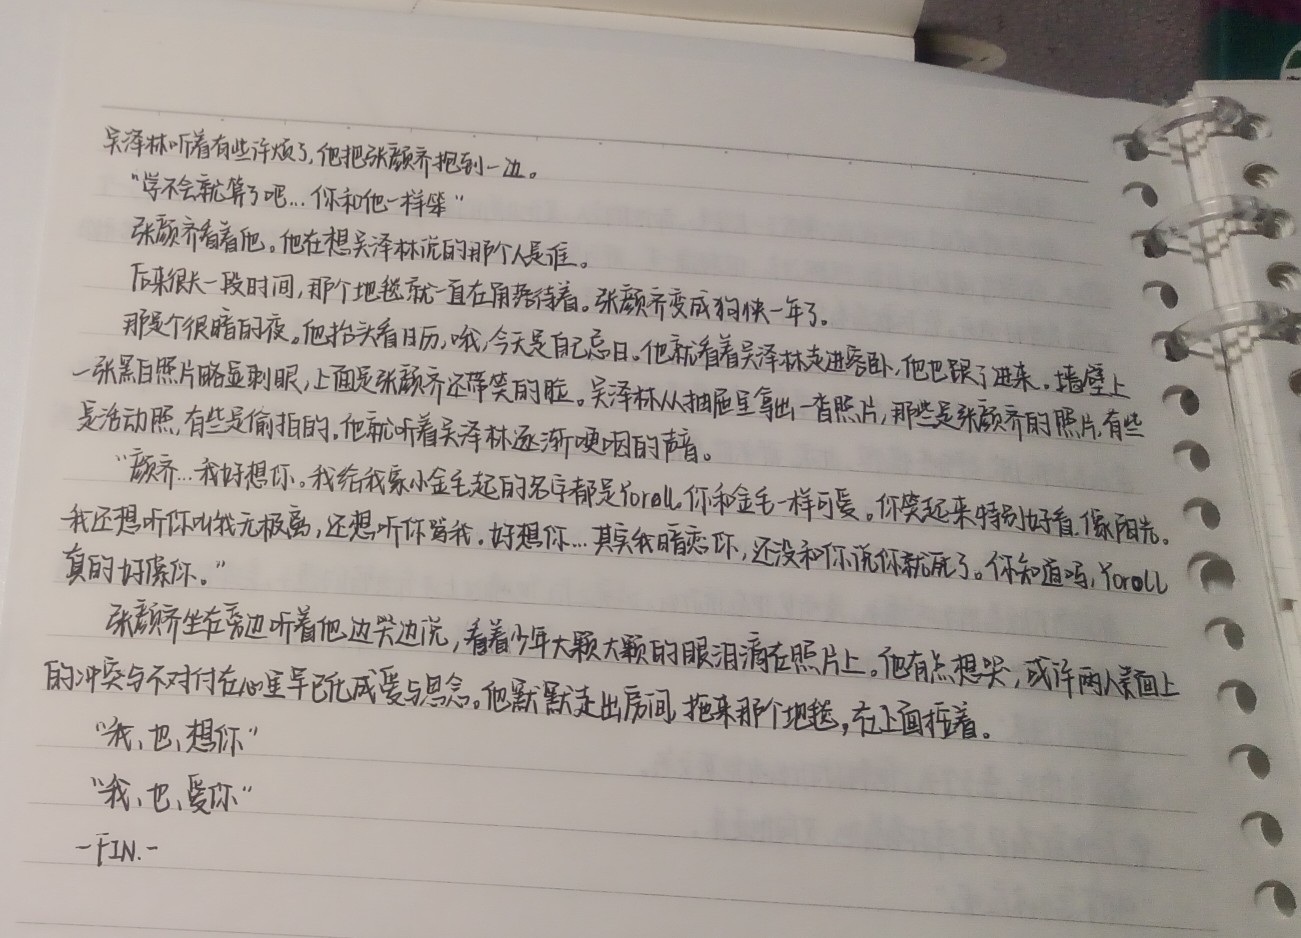 吴泽林听着有些许烦了,他把张颜齐抱到一边。
“学不会就算了吧...你和他一样笨”
张颜齐看着他。他在想吴泽林说的那个人是谁。
后来很长一段时间,那个地毯就一直在角落待着。张颜齐变成狗快一年了。
那是个很暗的夜。他抬头看日历,哦,今天是自己忌日。他就看着吴泽林走进客卧,他也跟了进来。墙壁上
一张黑白照片略显刺眼,上面是张颜齐还带笑的脸。吴泽林从抽屉里拿出一沓照片,那些是张颜齐的照片,有些
是活动照,有些是偷拍的。他就听着吴泽林逐渐哽咽的声音。
“颜齐...我好想你。我给我家小金毛起的名字都是Yoroll。你和金毛一样可爱。你笑起来特别好看,像阳光。
我还想听你叫我无极离,还想听你骂我。好想你...其实我暗恋你,还没和你说你就死了。你知道吗,Yoroll
真的好像你。”
张颜齐坐在旁边听着他边哭边说,看着少年大颗大颗的眼泪滴在照片上。他有点想哭,或许两人表面上
的冲突与不对付在心里早已化成爱与思念。他默默走出房间,拖来那个地毯,在上面按着。
“我、也、想你”
“我、也、爱你”
-FIN.-